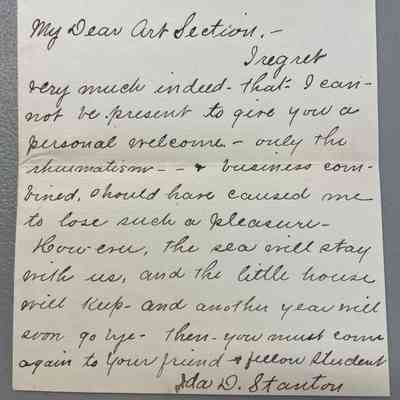 My Dear Art Section,-
I regret
very much indeed- that- I can-
not be present to give you a
personal welcome- only the
rheumatism-- & business com-
bined, should have caused me
to lose such a pleasure-
How-ever, the sea will stay
with us, and the little house
will keep- and another year will
soon go bye- then- you must come
again to your friend & fellow student
Ida D. Stanton